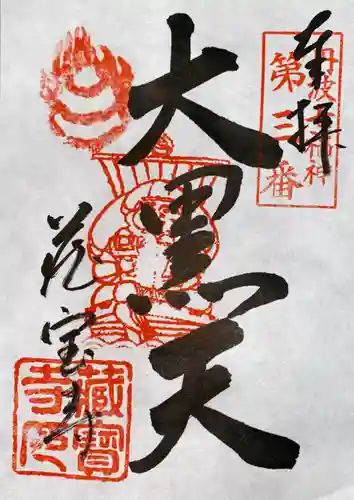 奉拝
丹波七福神
第三番
大黒天
蔵宝寺
蔵寳寺印